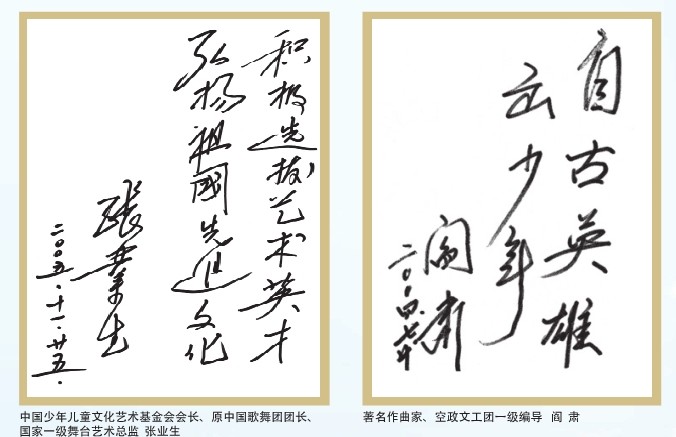 积极选拔艺术英才
弘扬祖國先进文化
張業生
二〇〇五.十一.廿五.
中国少年儿童文化艺术基金会会长、原中国歌舞团团长、
国家一级舞台艺术总监 张业生
自古英雄
出少年
阎肃
二〇〇四.
著名作曲家、空政文工团一级编导 阎 肃